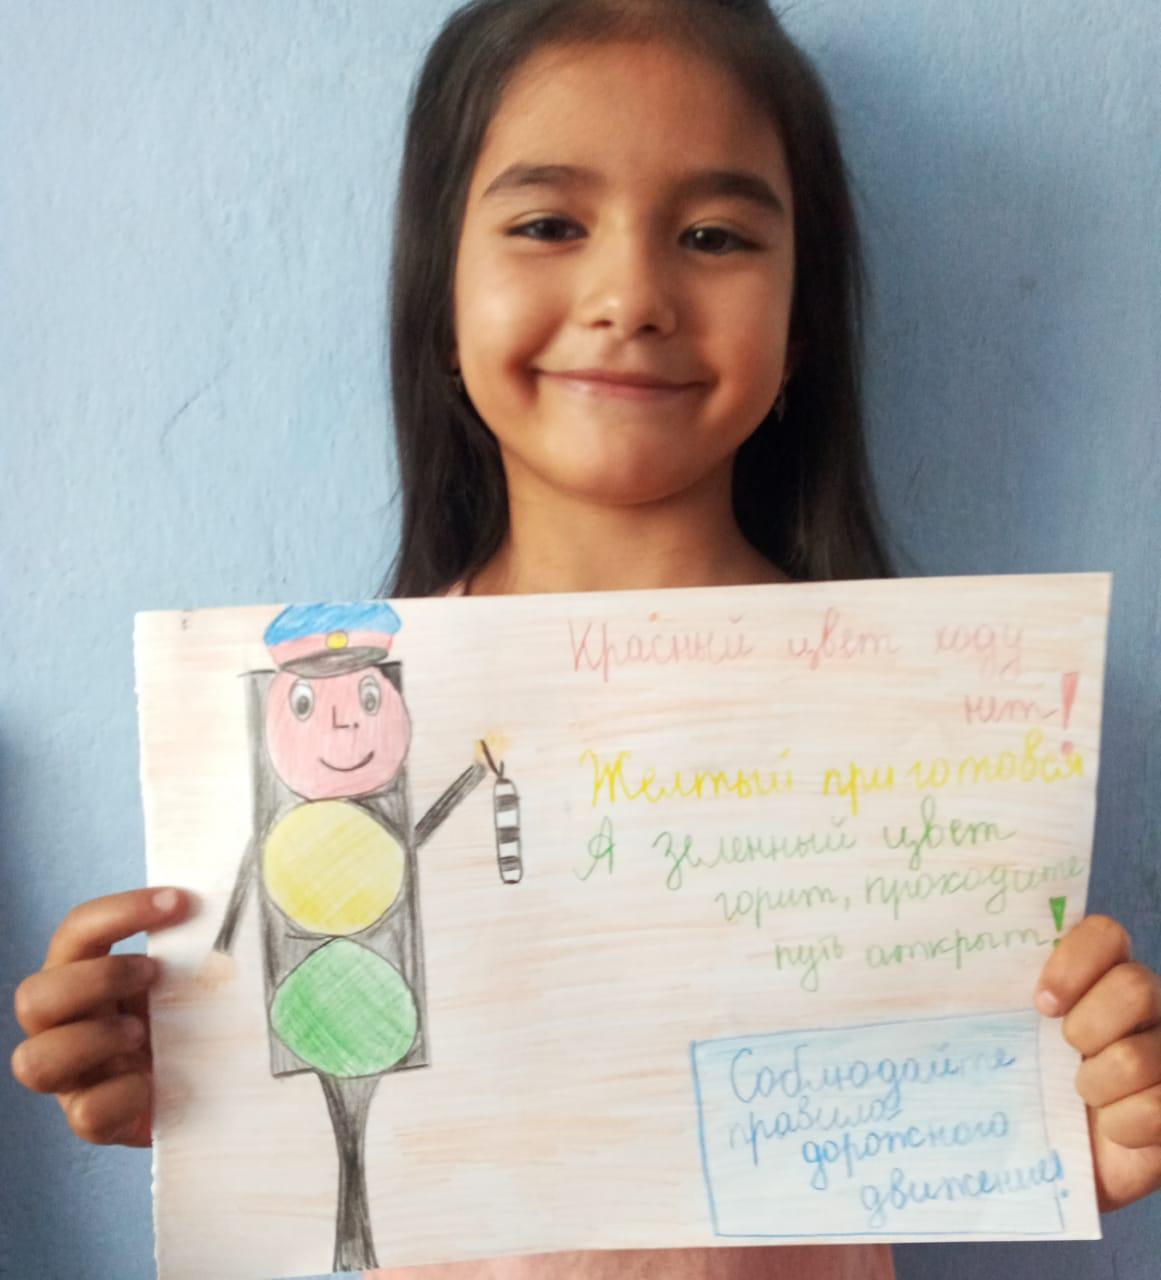 Красный цвет ходу
нет!
Желтый приготовся
А зеленный цвет
горит, проходите
путь аткрыт!
Соблюдайте
правила
дорожного
движение!